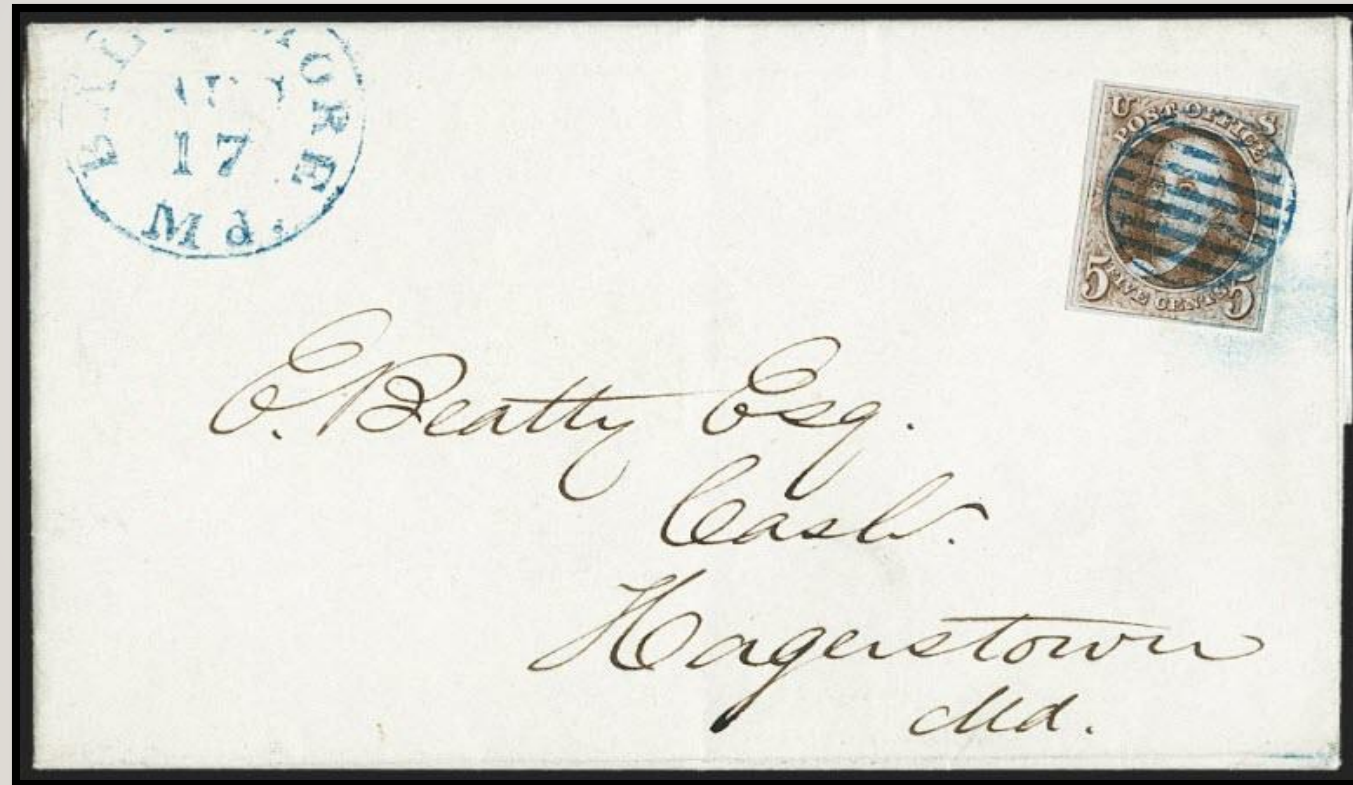 BALTIMORE Md.
17
U S
POST OFFICE
FIVE CENTS
5 5
E. Beatty Esq.
Cash.
Hagerstown
Md.